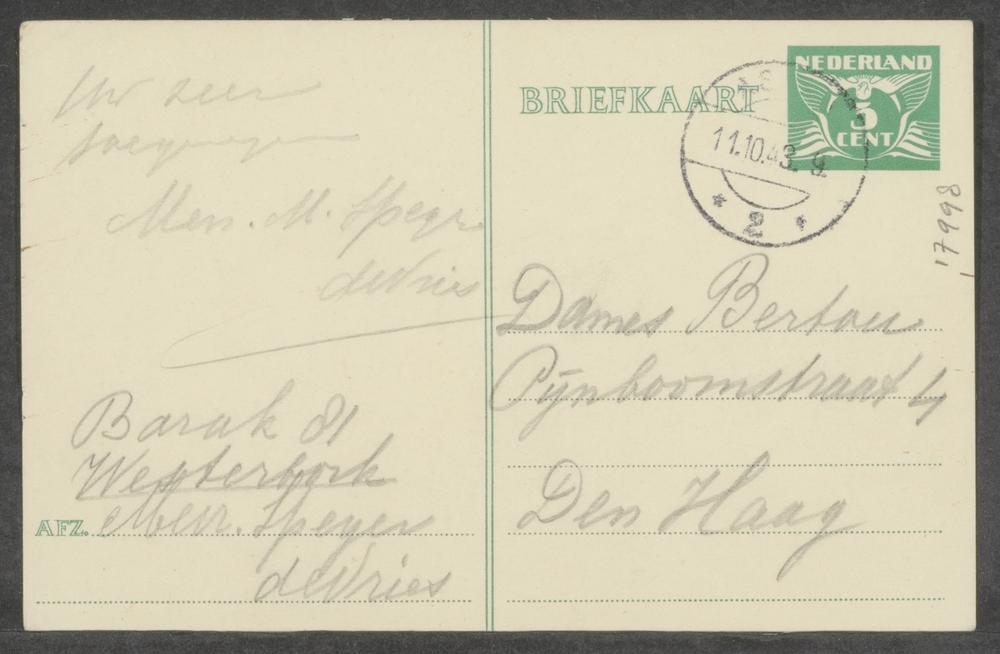 Uw zeer
toegenegen
Mevr. M. Speyer
deVries
Barak 81
Westerbork
AFZ. Mevr. Speyer
deVries
BRIEFKAART
NEDERLAND
5
CENT
11.10.43. 9.
2
17998
Dames Berton
Pijnboomstraat 4
Den Haag